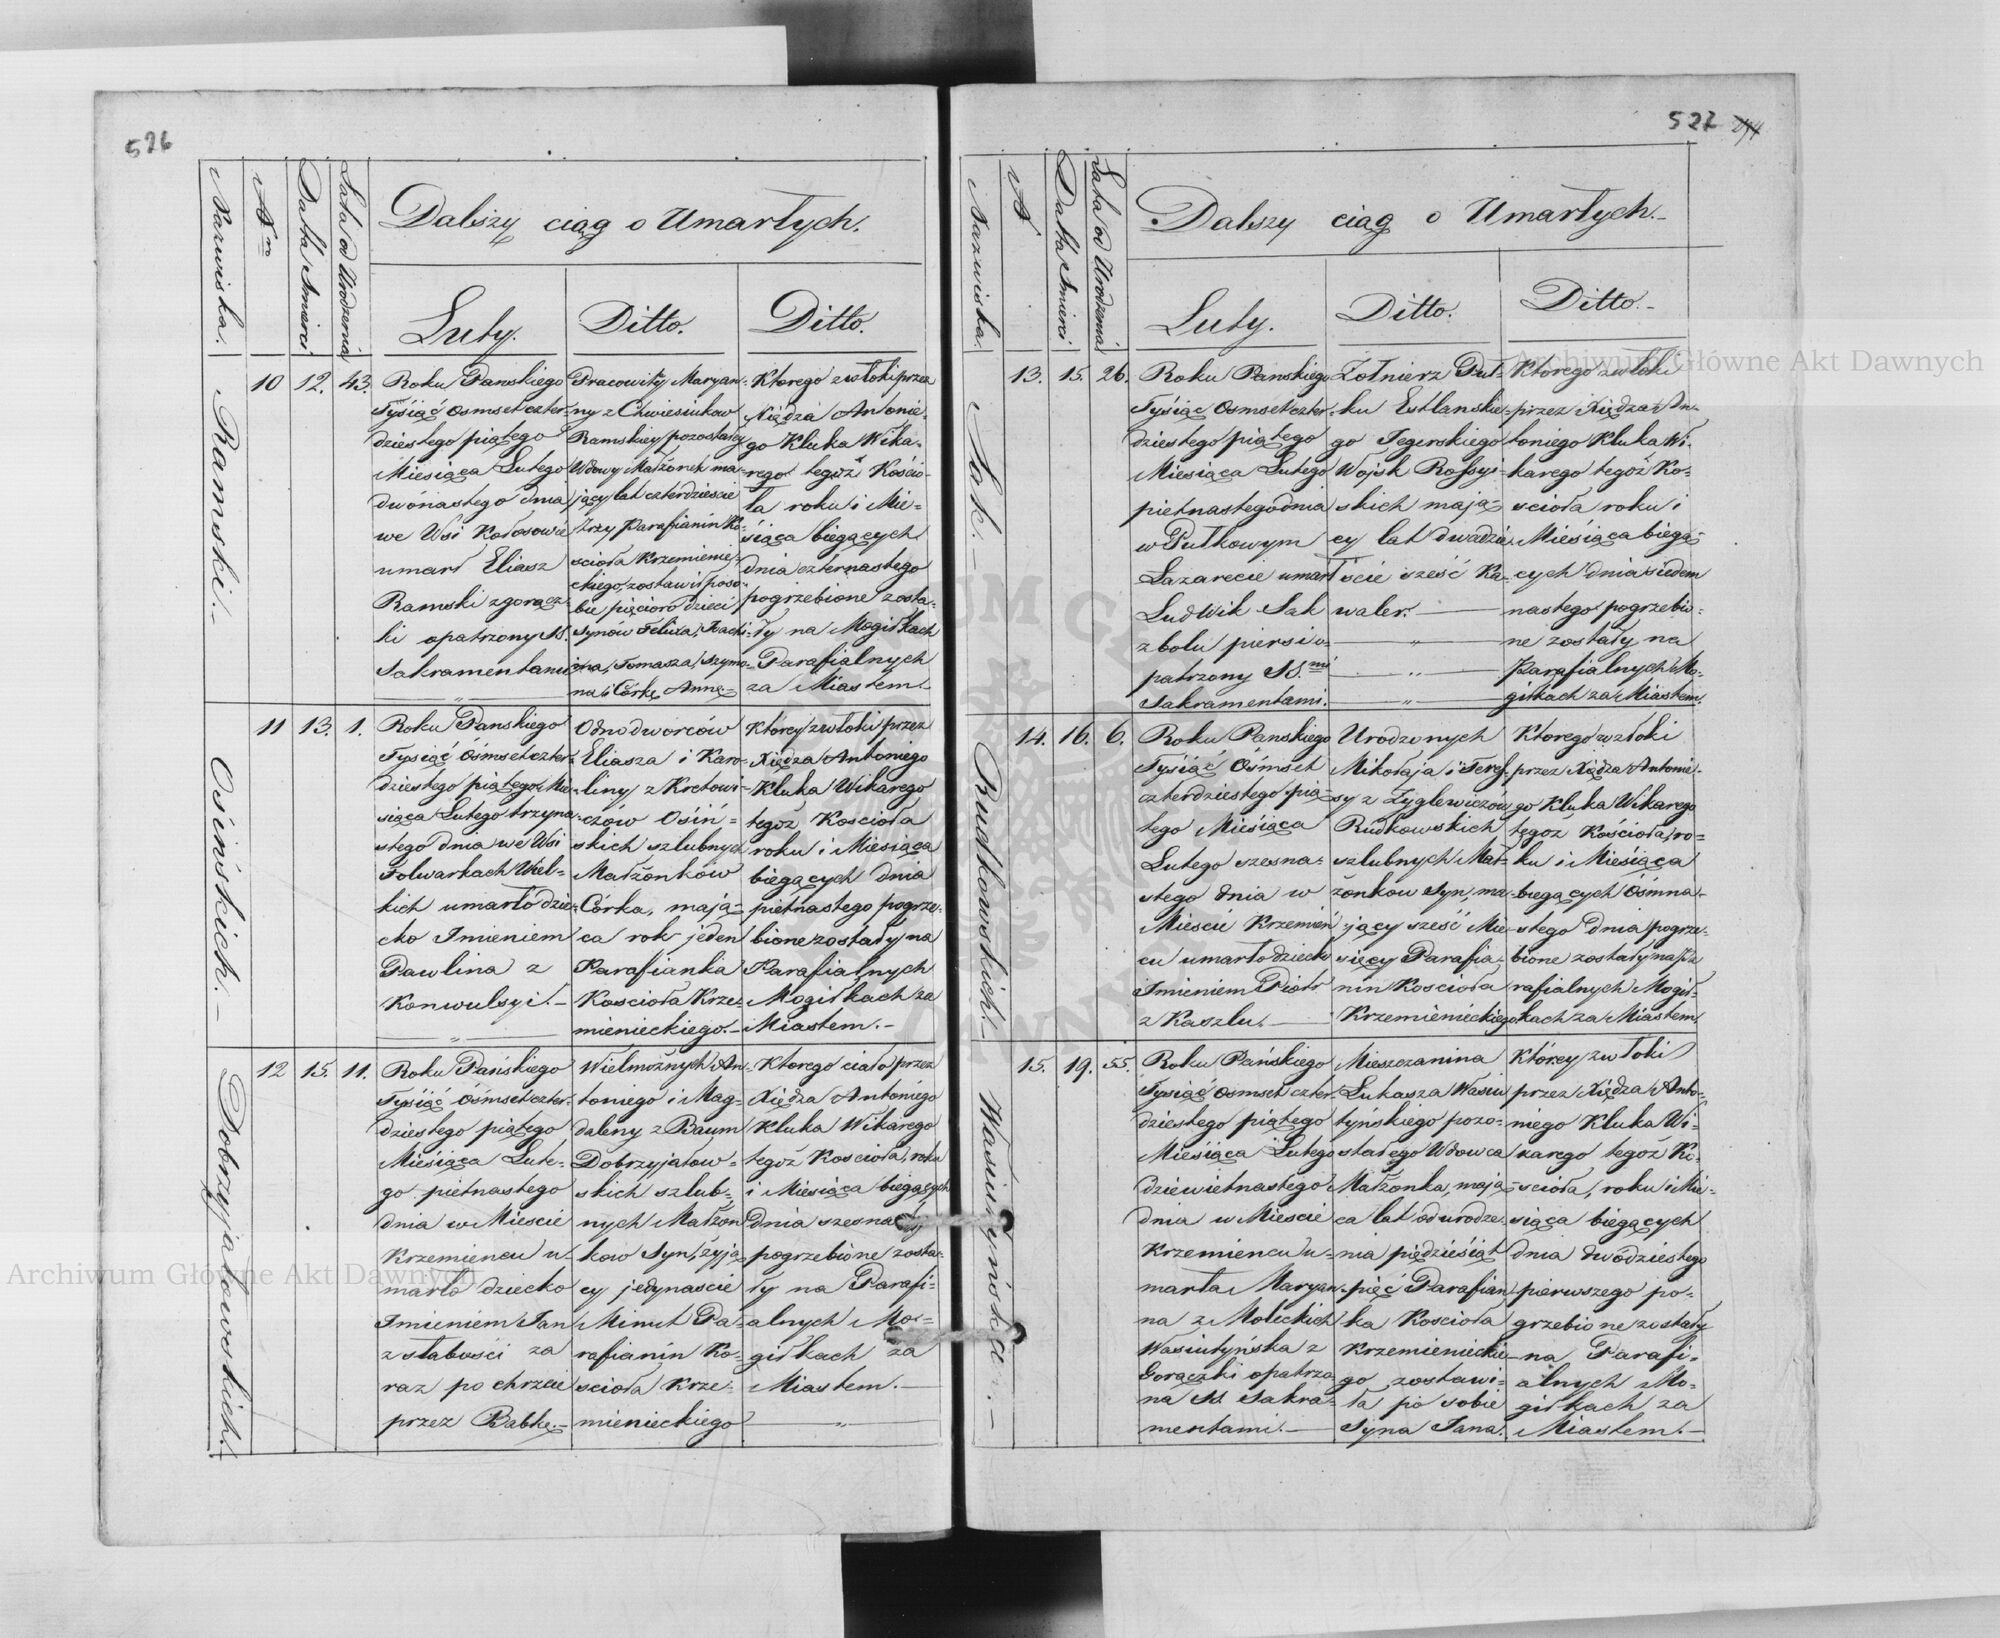 526
Nazwiska.
Nro
Data Smierci
Lata od Urodzenia
Dalszy ciąg o Umarłych.
Luty.
Ditto.
Ditto.
Ramski.
10
12.
43.
Roku Panskiego
Tysiąć osmset czter-
dziestego piątego
Miesiąca Lutego
dwónastego dnia
we Wsi Kołosowie
umarł Eliasz
Ramski z gorącz-
ki opatrzony SS.
Sakramentami
Pracowity Maryan-
ny z Chwiesiukow
Ramskiey pozostałey
Wdowy Małżonek ma-
jący lat czterdzieście
trzy Parafianin Ko-
scioła Krzemienie-
ckiego, zostawił poso-
bie pięcioro dzieci
Synów Felixa, Joachi-
ma, Tomasza, Szymo-
na i Córkę Annę
Ktorego zwłoki przez
Xiędza Antonie-
go Kluka Wika-
rego tegoż Kościo-
ła roku i Mie-
siąca biegących
dnia czternastego
pogrzebione zosta-
ły na Mogiłkach
Parafialnych
za Miastem.
Osińskich.
11
13.
1.
Roku Panskiego
Tysiąć Ośmset czter-
dziestego piątego Mie-
siąca Lutego trzyna-
stego dnia we Wsi
Folwarkach Wiel-
kich umarło dzie-
cko Imieniem
Pawlina z
Konwulsyi.
Odnodworców
Eliasza i Karo-
liny z Kretowi-
czów Osiń-
skich szlubnych
Małżonków
Córka, mają-
ca rok jeden
Parafianka
Koscioła Krze-
mienieckiego.
Ktorey zwłoki przez
Xiędza Antoniego
Kluka Wikarego
tegoż Koscioła
roku i Miesiąca
biegących dnia
pietnastego pogrze-
bione zostały na
Parafialnych
Mogiłkach za
Miastem.
Dobrzyjałowskich.
12
15.
11.
Roku Pańskiego
Tysiąć ośmset czter-
dziestego piątego
Miesiąca Lute-
go pietnastego
dnia w Miescie
Krzemiencu u-
marło dziecko
Imieniem Jan
z słabości za
raz po chrzcie
przez Babkę.
Wielmożnych An-
toniego i Mag-
daleny z Baum
Dobrzyjałow-
skich szlub-
nych Małżon
kow Syn, żyją
cy jedynascie
Minut Pa-
rafianin Ko-
scioła Krze-
mienieckiego
Ktorego ciało przez
Xiędza Antoniego
Kluka Wikarego
tegoż Koscioła, roku
i Miesiąca biegących
Dnia szesnastego
pogrzebione zosta-
ły na Parafi-
alnych Mo-
giłkach za
Miastem.
527
Nazwiska.
N
Data Smierci
Lata od Urodzenia
Dalszy ciąg o Umarłych.
Luty.
Ditto.
Ditto.
Sak.
13.
15.
26.
Roku Panskiego
Tysiąc Osmset czter-
dziestego piątego
Miesiąca Lutego
pietnastego dnia
w Pułkowym
Lazarecie umarł
Ludwik Sak
z bolu piersi o-
patrzony SS.mi
Sakramentami.
Żołnierz Puł-
ku Estlanskie-
go Jegerskiego
Woysk Rossyi-
skich mają-
cy lat dwadzie
scie sześć Ka-
waler.
Ktorego zwłoki
przez Xiędza An-
toniego Kluka Wi-
karego tegoż Ko-
scioła roku i
Miesiąca biegą-
cych dnia siedem
nastego pogrzebio-
ne zostały na
Parafialnych Mo-
giłkach za Miastem.
Rudkowskich.
14.
16.
6.
Roku Panskiego
Tysiąć Ośmset
czterdziestego pią-
tego Miesiąca
Lutego szesna-
stego dnia w
Miescie Krzemień
cu umarło dziecko
Imieniem Piotr
z Kaszlu.
Urodzonych
Mikołaja i Teres-
sy z Zyglewiczów
Rudkowskich
szlubnych Mał-
żonkow Syn, ma-
jący sześć Mie-
sięcy Parafia-
nin Koscioła
Krzemienieckiego
Ktorego zwłoki
przez Xiędza Antonie-
go Kluka Wikarego
tegoz Kościoła, ro-
ku i Miesiąca
biegących Ośmna-
stego Dnia pogrze-
bione zostały na Pa
rafialnych Mogił-
kach za Miastem.
Wasiutyńska.
15.
19.
55.
Roku Pańskiego
Tysiąć osmset czter-
dziestego piątego
Miesiąca Lutego
dziewietnastego
dnia w Miescie
Krzemiencu u-
marła Maryan-
na z Molickich
Wasiutyńska z
Gorączki opatrzo
na SS. Sakra-
mentami.
Mieszczanina
Łukasza Wasiu
tyńskiego pozo-
stałego Wdowca
Małżonka, mają-
ca lat od urodze-
nia piędziesiąt
pięć Parafian-
ka Koscioła
Krzemienieckie-
go, zostawi-
ła po sobie
Syna Jana.
Którey zwłoki
przez Xiędza Anto-
niego Kluka Wi-
karego tegoż Ko-
scioła, roku i Mie-
siąca biegących
dnia dwódziestego
pierwszego po-
grzebione zostały
na Parafi-
alnych Mo-
giłkach za
Miastem.
Archiwum Główne Akt Dawnych
Archiwum Główne Akt Dawnych